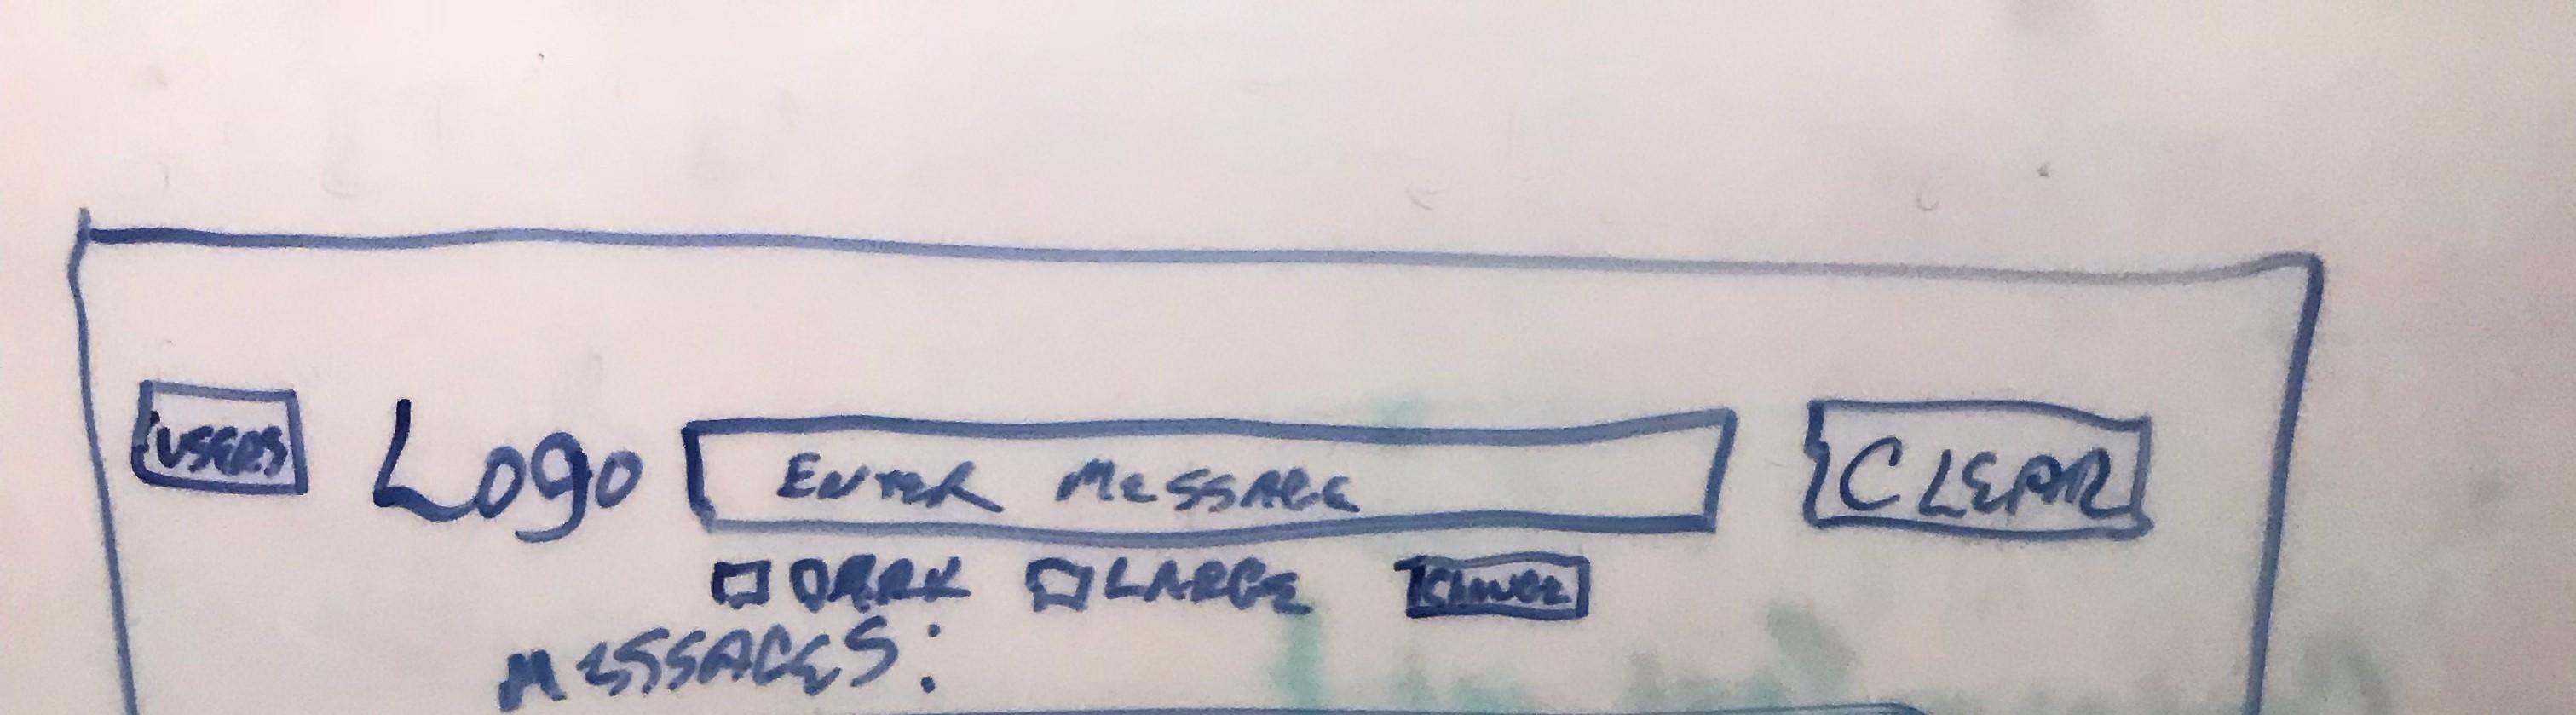 USERS Logo ENTER MESSAGE CLEAR
DARK LARGE CHANGE
MESSAGES: